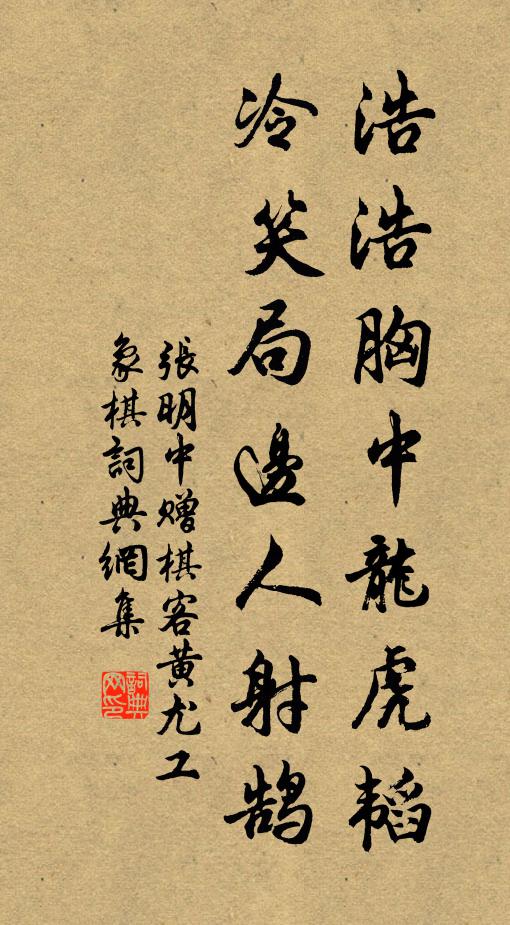 浩浩胸中龍虎韜
冷笑局邊人射鵠
張明中贈棋客黃尤工
象棋詞典網集
詞典網印